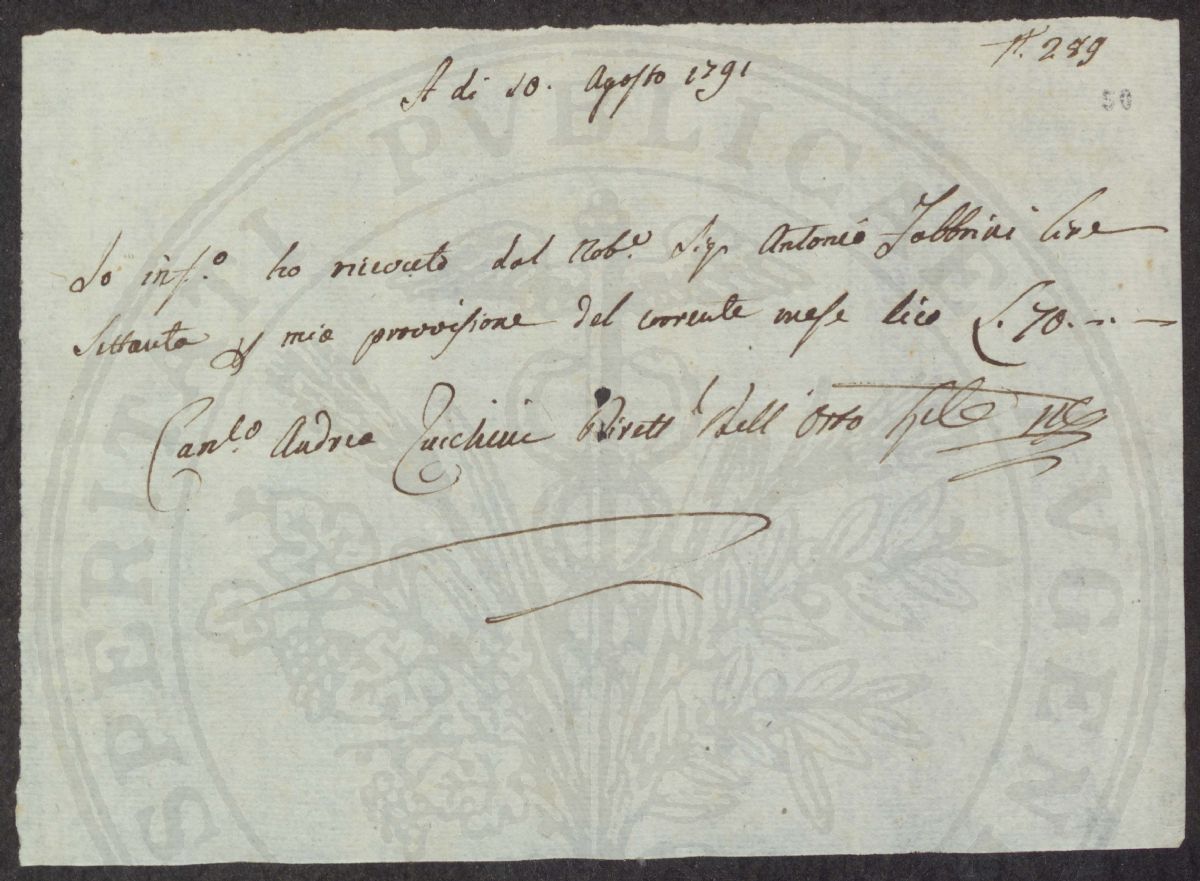 N. 289
A di 10. Agosto 1791
50
Io inf.o ho riceuto dal Nob.e Sig. Antonio Fabbrini lire
Settanta p mia provvisione del corrente mese dico £. 70. -.-
Can.co Andrea Zucchini Dirett. dell' Orto
PERITATI PVBLICAE AVGEN